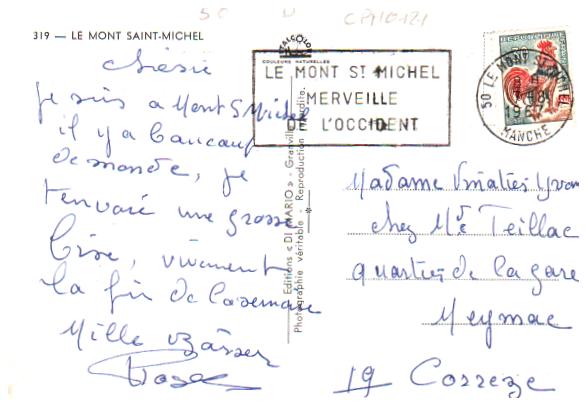 50
CPM10121
319 — LE MONT SAINT-MICHEL
COULEURS NATURELLES
LE MONT ST MICHEL
MERVEILLE
DE L'OCCIDENT
50 LE MONT ST MICHEL
MANCHE
Chérie
Je suis a Mont S Michel
il y a baucaup
de monde, je
t'envoie une grosse
bise, vivement
la fin de la semaine
Mille baisser
Editions « DI MARIO » - Granville
Photographie véritable - Reproduction interdite.
Madame Yvon
chez Me Teillac
quartier de la gare
Meymac
19 Correze